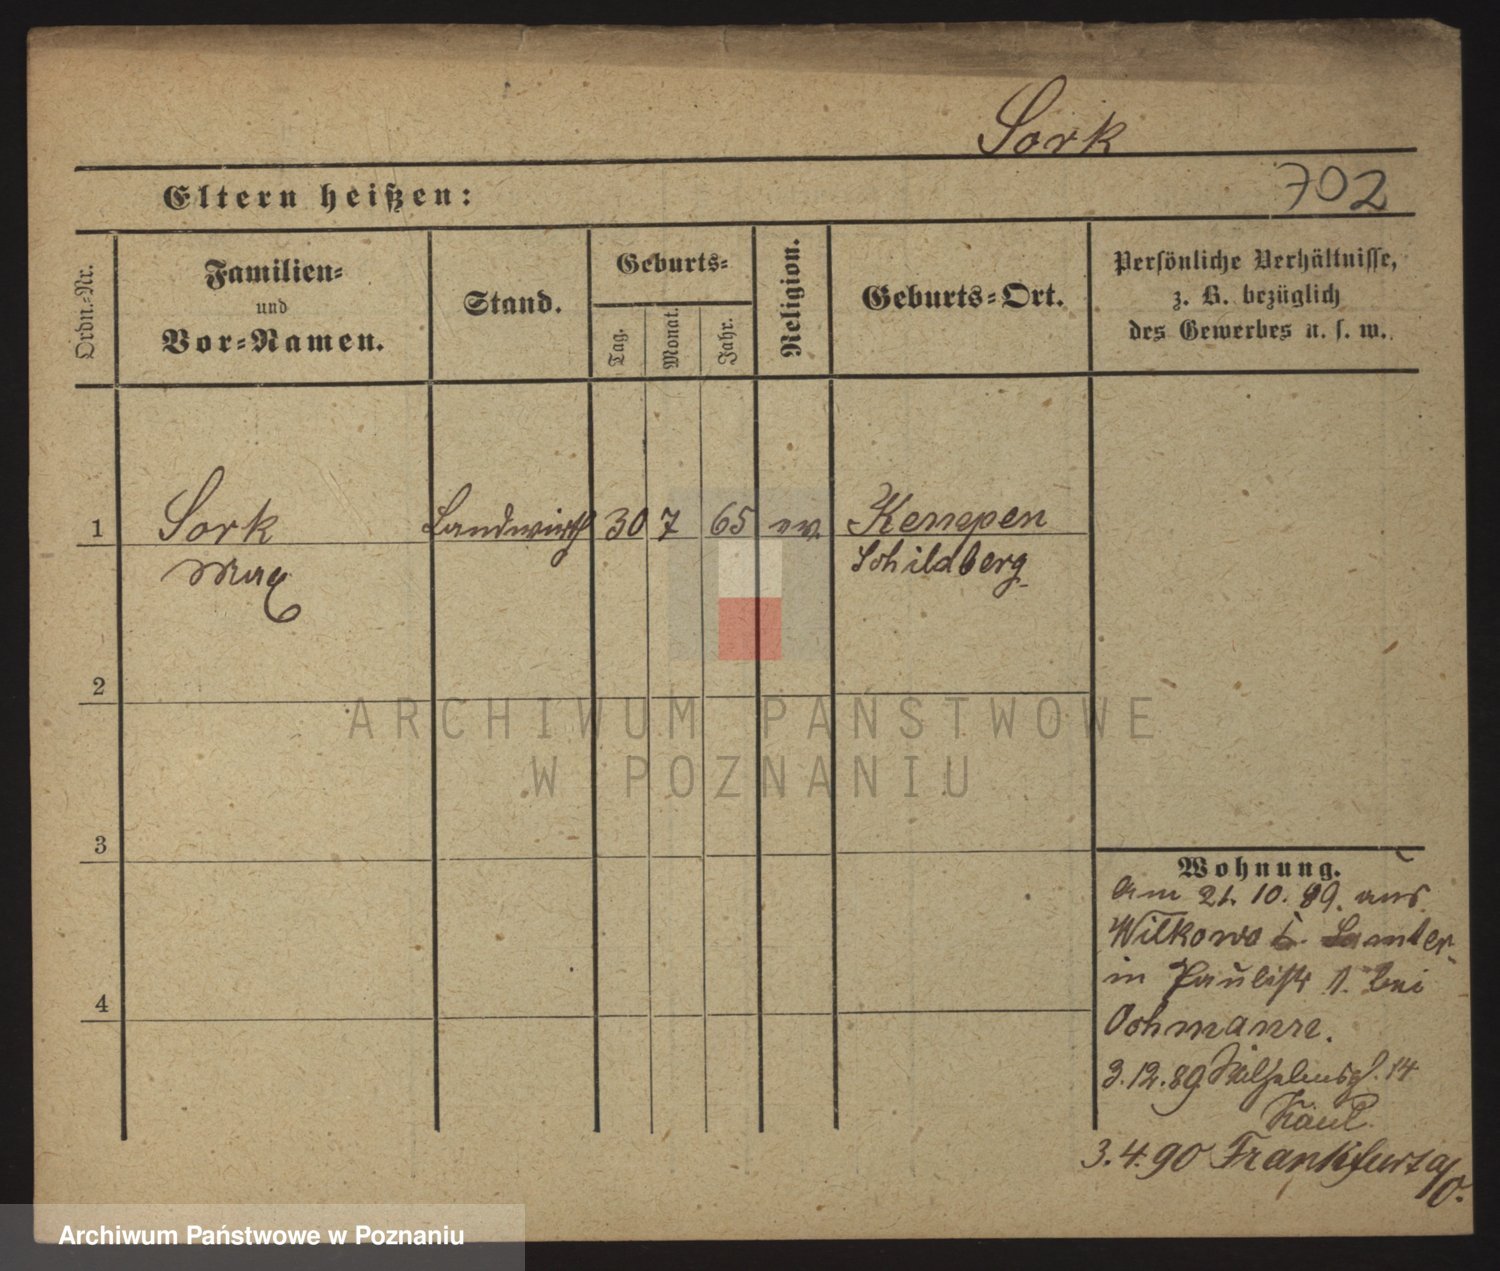 Sork
Eltern heißen:
702
Ordn.-Nr.
Familien-
und
Vor-Namen.
Stand.
Geburts-
Tag.
Monat.
Jahr.
Religion.
Geburts-Ort.
Persönliche Verhältnisse,
z. B. bezüglich
des Gewerbes u. s. w.
1
Sork
Landwirth
30
7
65
ev.
Kempen
Max
Schildberg
2
ARCHIWUM PAŃSTWOWE
W POZNANIU
3
Wohnung.
Am 21. 10. 89. aus
Wilkowo
in Paulistr 1. bei
Ochmann.
4
3.12.89 Wilhelmspl. 14
3.4.90 Frankfurt a/O.
Archiwum Państwowe w Poznaniu